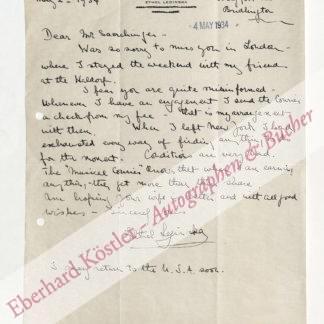 ETHEL LEGINSKA
May 2 - 1934
Bridlington
4 MAY 1934
Dear Mr Saerchinger -
Was so sorry to miss you in London -
where I stayed the weekend with my friend
at the Waldorf.
I fear you are quite misinformed -
Whenever I have an engagement I send the Courier
a check from my fee - that is my arrangement
with them. When I left New York I had
exhausted every way of finding
for the moment. Conditions are very bad.
The "Musical Courier" knows that when I am earning
anything - they get more than their share
Am hoping your wife is better and with all good
wishes - sincerely
Ethel Leginska
I may return to the U.S.A. soon.
Eberhard Köstler - Autographen & Bücher